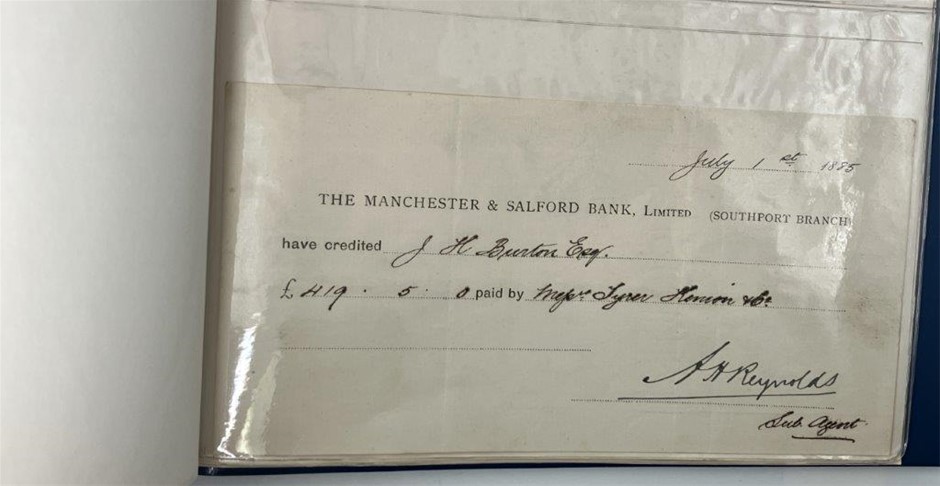 July 1st 1885
THE MANCHESTER & SALFORD BANK, LIMITED (SOUTHPORT BRANCH)
have credited J H Burton Esq.
£419 . 5 . 0 paid by Messrs Tyrer & Co.
A H Reynolds
Sub. Agent